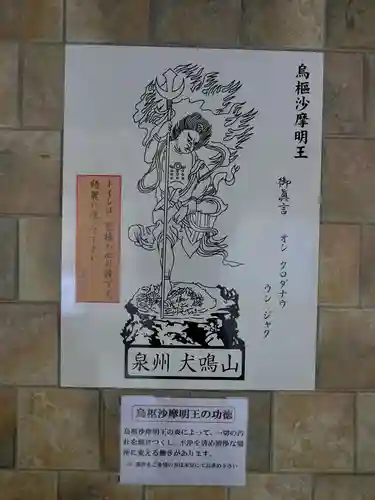 烏枢沙摩明王
御真言
オン クロダナウ
ウン ジャク
トイレは
綺麗に
泉州 犬鳴山
烏枢沙摩明王の功徳
烏枢沙摩明王の炎によって、一切の汚
れを焼きつくし、不浄を清め清浄な場
所に変える働きがあります。